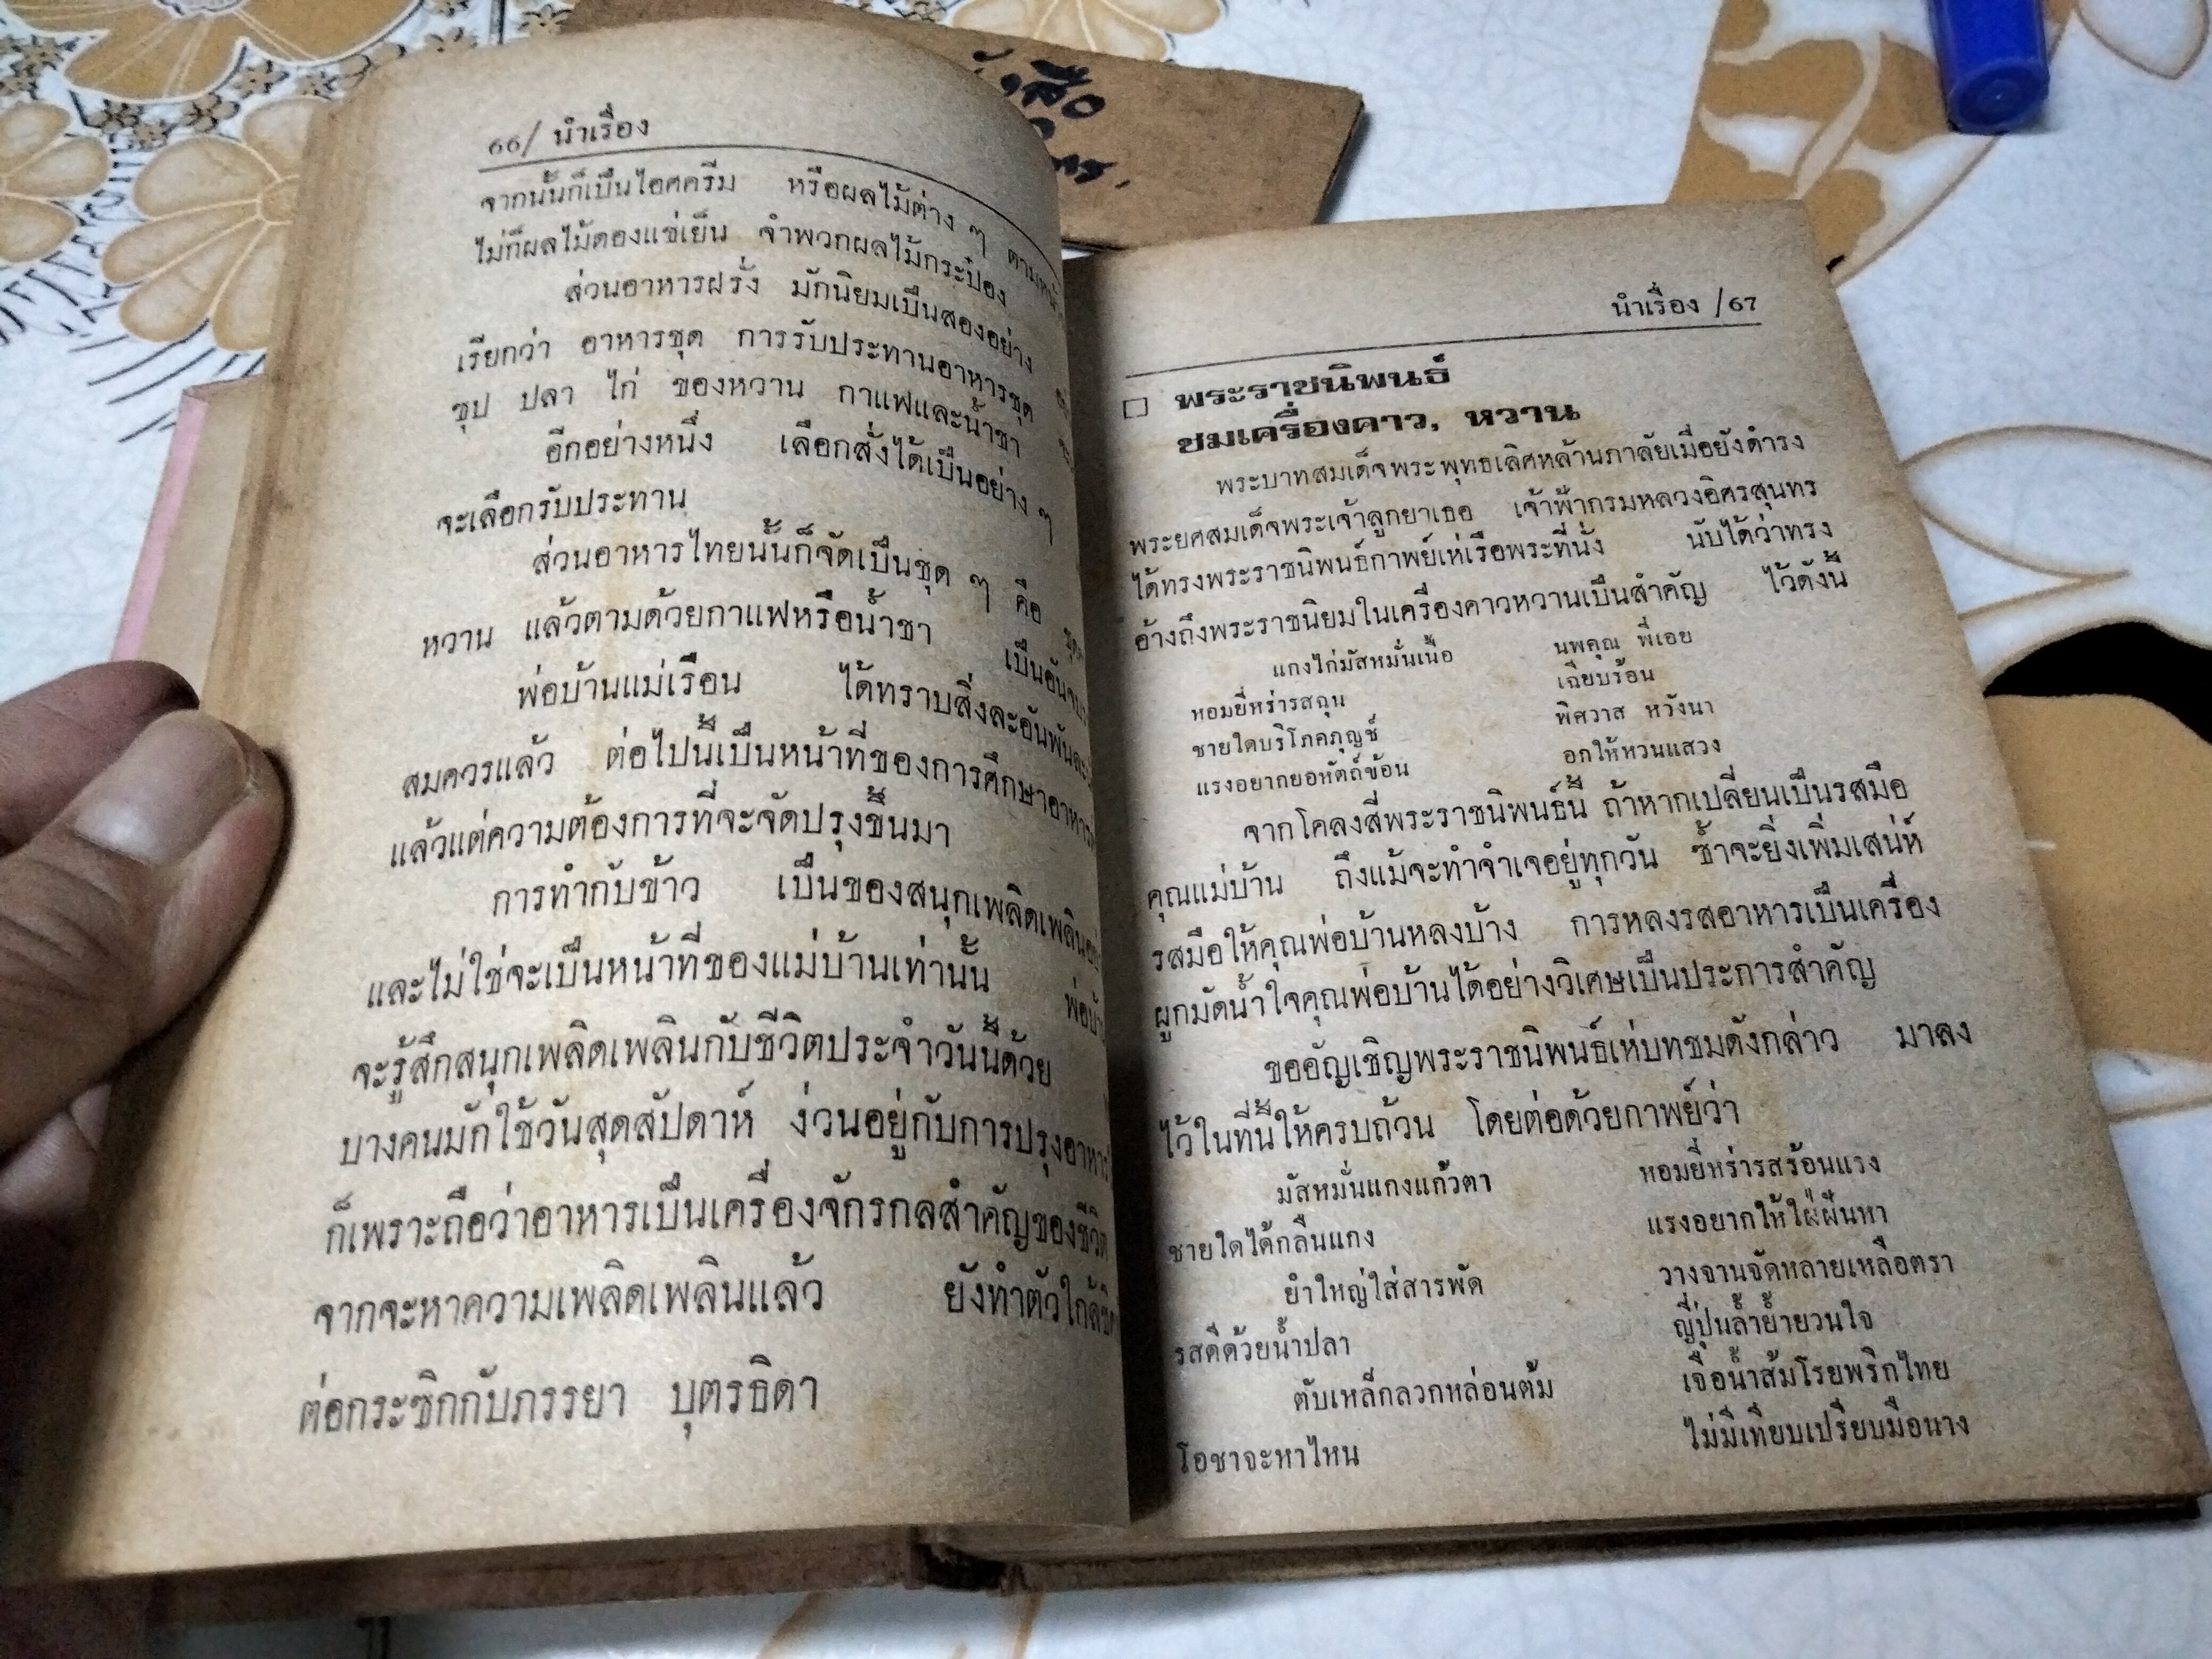 66/ นำเรื่อง
จากนั้นก็เป็นไอศครีม หรือผลไม้ต่าง ๆ
ไม่ก็ผลไม้ดองแช่เย็น จำพวกผลไม้กระป๋อง
ส่วนอาหารฝรั่ง มักนิยมเป็นสองอย่าง
เรียกว่า อาหารชุด การรับประทานอาหารชุด
ซุป ปลา ไก่ ของหวาน กาแฟและน้ำชา
อีกอย่างหนึ่ง เลือกสั่งได้เป็นอย่าง ๆ
จะเลือกรับประทาน
ส่วนอาหารไทยนั้นก็จัดเป็นชุด ๆ คือ
หวาน แล้วตามด้วยกาแฟหรือน้ำชา
พ่อบ้านแม่เรือน ได้ทราบสิ่งละอันพันละ
สมควรแล้ว ต่อไปนี้เป็นหน้าที่ของการศึกษาอาหาร
แล้วแต่ความต้องการที่จะจัดปรุงขึ้นมา
การทำกับข้าว เป็นของสนุกเพลิดเพลิน
และไม่ใช่จะเป็นหน้าที่ของแม่บ้านเท่านั้น
จะรู้สึกสนุกเพลิดเพลินกับชีวิตประจำวันนี้ด้วย
บางคนมักใช้วันสุดสัปดาห์ ง่วนอยู่กับการปรุงอาหาร
ก็เพราะถือว่าอาหารเป็นเครื่องจักรกลสำคัญของชีวิต
จากจะหาความเพลิดเพลินแล้ว ยังทำตัวใกล้ชิด
ต่อกระซิกกับภรรยา บุตรธิดา
สือ
นำเรื่อง /67
พระราชนิพนธ์
ชมเครื่องคาว, หวาน
พระบาทสมเด็จพระพุทธเลิศหล้านภาลัยเมื่อยังดำรง
พระยศสมเด็จพระเจ้าลูกยาเธอ เจ้าฟ้ากรมหลวงอิศรสุนทร
ได้ทรงพระราชนิพนธ์กาพย์เห่เรือพระที่นั่ง นับได้ว่าทรง
อ้างถึงพระราชนิยมในเครื่องคาวหวานเป็นสำคัญ ไว้ดังนี้
แกงไก่มัสหมั่นเนื้อ นพคุณ พี่เอย
หอมยี่หร่ารสฉุน เฉียบร้อน
ชายใดบริโภคภุญช์ พิศวาส หวังนา
แรงอยากยอหัตถ์ข้อน อกให้หวนแสวง
จากโคลงสี่พระราชนิพนธ์นี้ ถ้าหากเปลี่ยนเป็นรสมือ
คุณแม่บ้าน ถึงแม้จะทำจำเจอยู่ทุกวัน ซ้ำจะยิ่งเพิ่มเสน่ห์
รสมือให้คุณพ่อบ้านหลงบ้าง การหลงรสอาหารเป็นเครื่อง
ผูกมัดน้ำใจคุณพ่อบ้านได้อย่างวิเศษเป็นประการสำคัญ
ขออัญเชิญพระราชนิพนธ์เห่บทชมดังกล่าว มาลง
ไว้ในที่นี้ให้ครบถ้วน โดยต่อด้วยกาพย์ว่า
มัสหมั่นแกงแก้วตา หอมยี่หร่ารสร้อนแรง
ชายใดได้กลืนแกง แรงอยากให้ใฝ่ฝันหา
ยำใหญ่ใส่สารพัด วางจานจัดหลายเหลือตรา
รสดีด้วยน้ำปลา ญี่ปุ่นล้ำย้ำยวนใจ
ตับเหล็กลวกหล่อนต้ม เจือน้ำส้มโรยพริกไทย
โอชาจะหาไหน ไม่มีเทียบเปรียบมือนาง